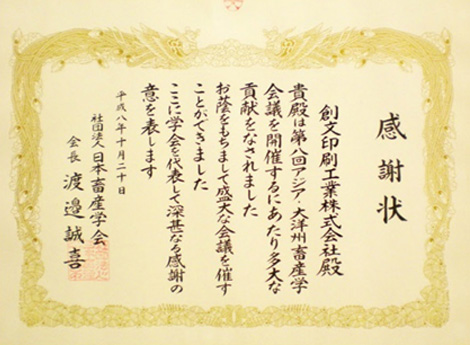 感謝状
創文印刷工業株式会社殿
貴殿は第八回アジア・大洋州畜産学
会議を開催するにあたり多大な
貢献をなされました
お蔭をもちまして盛大な会議を催す
ことができました
ここに学会を代表して深甚なる感謝の
意を表します
平成八年十月二十日
社団法人日本畜産学会
会長 渡邉誠喜